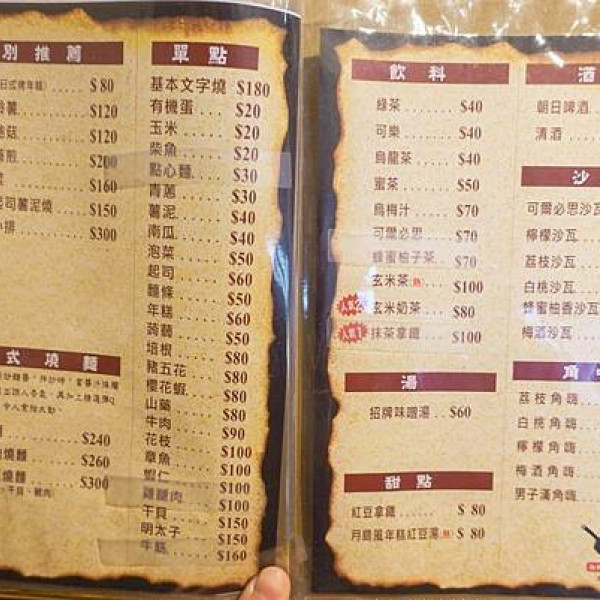 別推薦
日式烤年糕) $80
$120
菇 $120
煎 $200
$160
起司薯泥燒 $150
排 $300
式燒麵
$240
燒麵 $260
燒麵 $300
單點
基本文字燒 $180
有機蛋 $20
玉米 $20
柴魚 $20
點心麵 $30
青蔥 $30
薯泥 $40
南瓜 $40
泡菜 $50
起司 $60
麵條 $50
年糕 $60
蒟蒻 $50
培根 $80
豬五花 $80
櫻花蝦 $80
山藥 $80
牛肉 $90
花枝 $100
章魚 $100
蝦仁 $100
雞腿肉 $100
干貝 $150
明太子 $150
$160
飲料
綠茶 $40
可樂 $40
烏龍茶 $40
蜜茶 $50
烏梅汁 $70
可爾必思 $70
蜂蜜柚子茶 $70
玄米茶(熱) $100
人氣2 玄米奶茶 $80
人氣1 抹茶拿鐵 $100
湯
招牌味噌湯 $60
甜點
紅豆拿鐵 $80
月島風年糕紅豆湯(熱) $80
酒
朝日啤酒
清酒
沙
可爾必思沙瓦
檸檬沙瓦
荔枝沙瓦
白桃沙瓦
蜂蜜柚香沙瓦
梅酒沙瓦
角
荔枝角嗨
白桃角嗨
檸檬角嗨
梅酒角嗨
男子漢角嗨